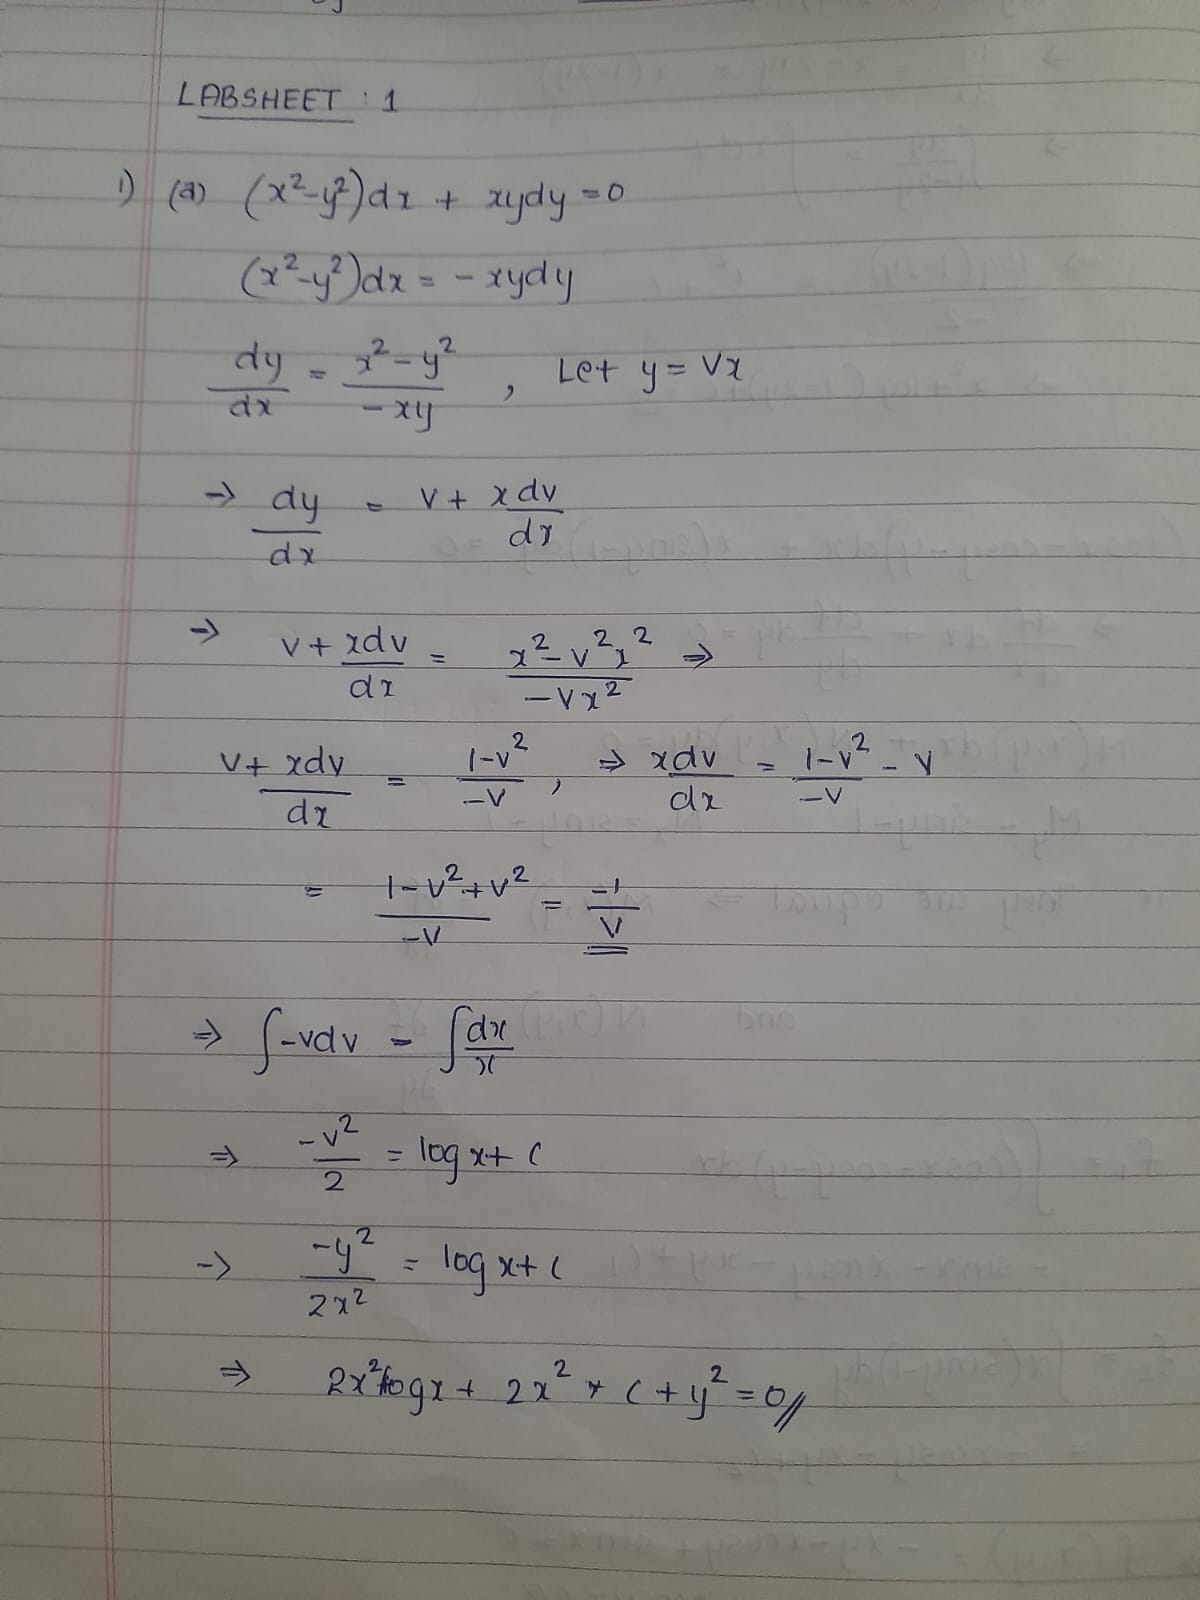 LABSHEET : 1
1) (a) (x²-y²)dx + xydy = 0
(x²-y²)dx = - xydy
dy/dx = (x²-y²)/(-xy) , Let y = vx
→ dy/dx = v + xdv/dx
⇒ v + xdv/dx = (x²-v²x²)/(-vx²) ⇒
v + xdv/dx = (1-v²)/(-v) , ⇒ xdv/dx = (1-v²)/(-v) - v
= (1-v²+v²)/(-v) = -1/v
⇒ ∫-vdv = ∫dx/x
⇒ -v²/2 = log x + C
→ -y²/2x² = log x + C
⇒ 2x²logx + 2x² * C + y² = 0//